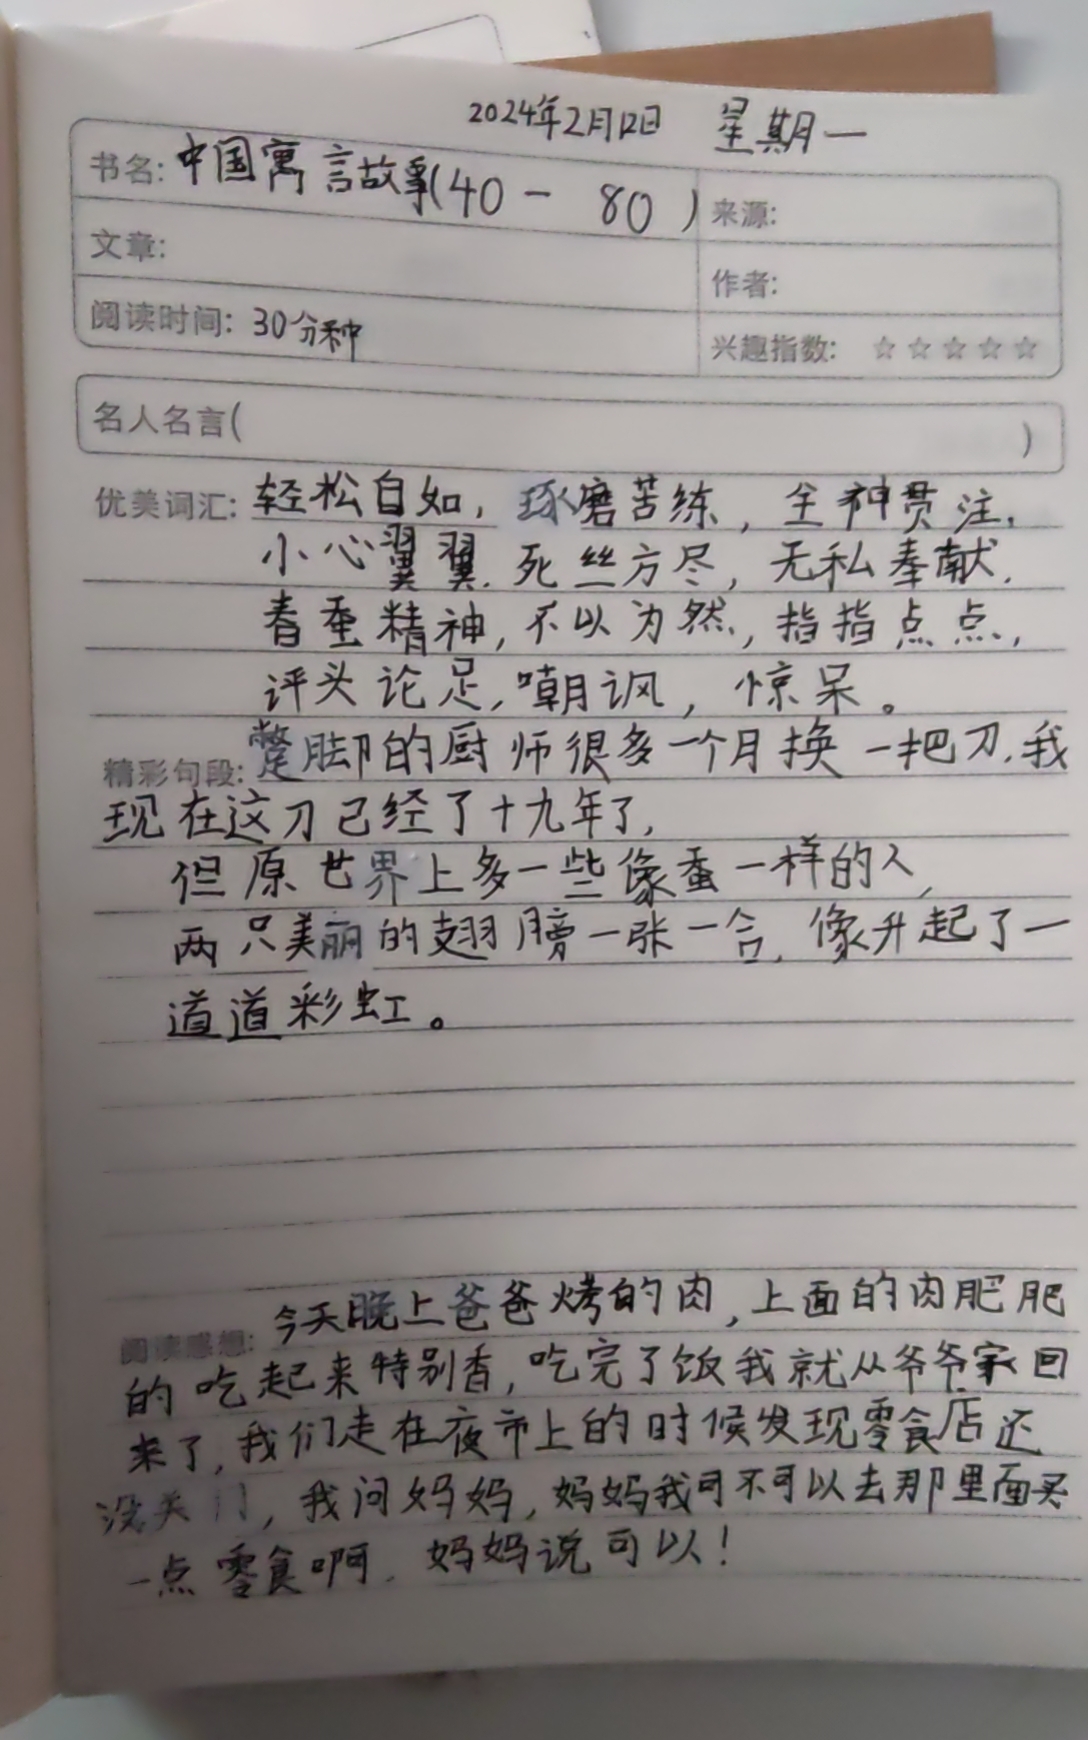 2024年2月12日 星期一
书名: 中国寓言故事(40- 80)
来源:
文章:
作者:
阅读时间: 30分种
兴趣指数: ☆☆☆☆☆
名人名言( )
优美词汇: 轻松自如, 琢磨苦练, 全神贯注,
小心翼翼. 死丝方尽, 无私奉献,
春蚕精神, 不以为然, 指指点点,
评头论足, 嘲讽, 惊呆。
精彩句段: 蹩脚的厨师很多一个月换一把刀.我
现在这刀已经了十九年了,
但原世界上多一些像蚕一样的人,
两只美丽的翅膀一张一合, 像升起了一
道道彩虹。
阅读感想: 今天晚上爸爸烤的肉, 上面的肉肥肥
的吃起来特别香, 吃完了饭我就从爷爷家回
来了, 我们走在夜市上的时候发现零食店还
没关门, 我问妈妈, 妈妈我可不可以去那里面买
一点零食啊. 妈妈说可以!